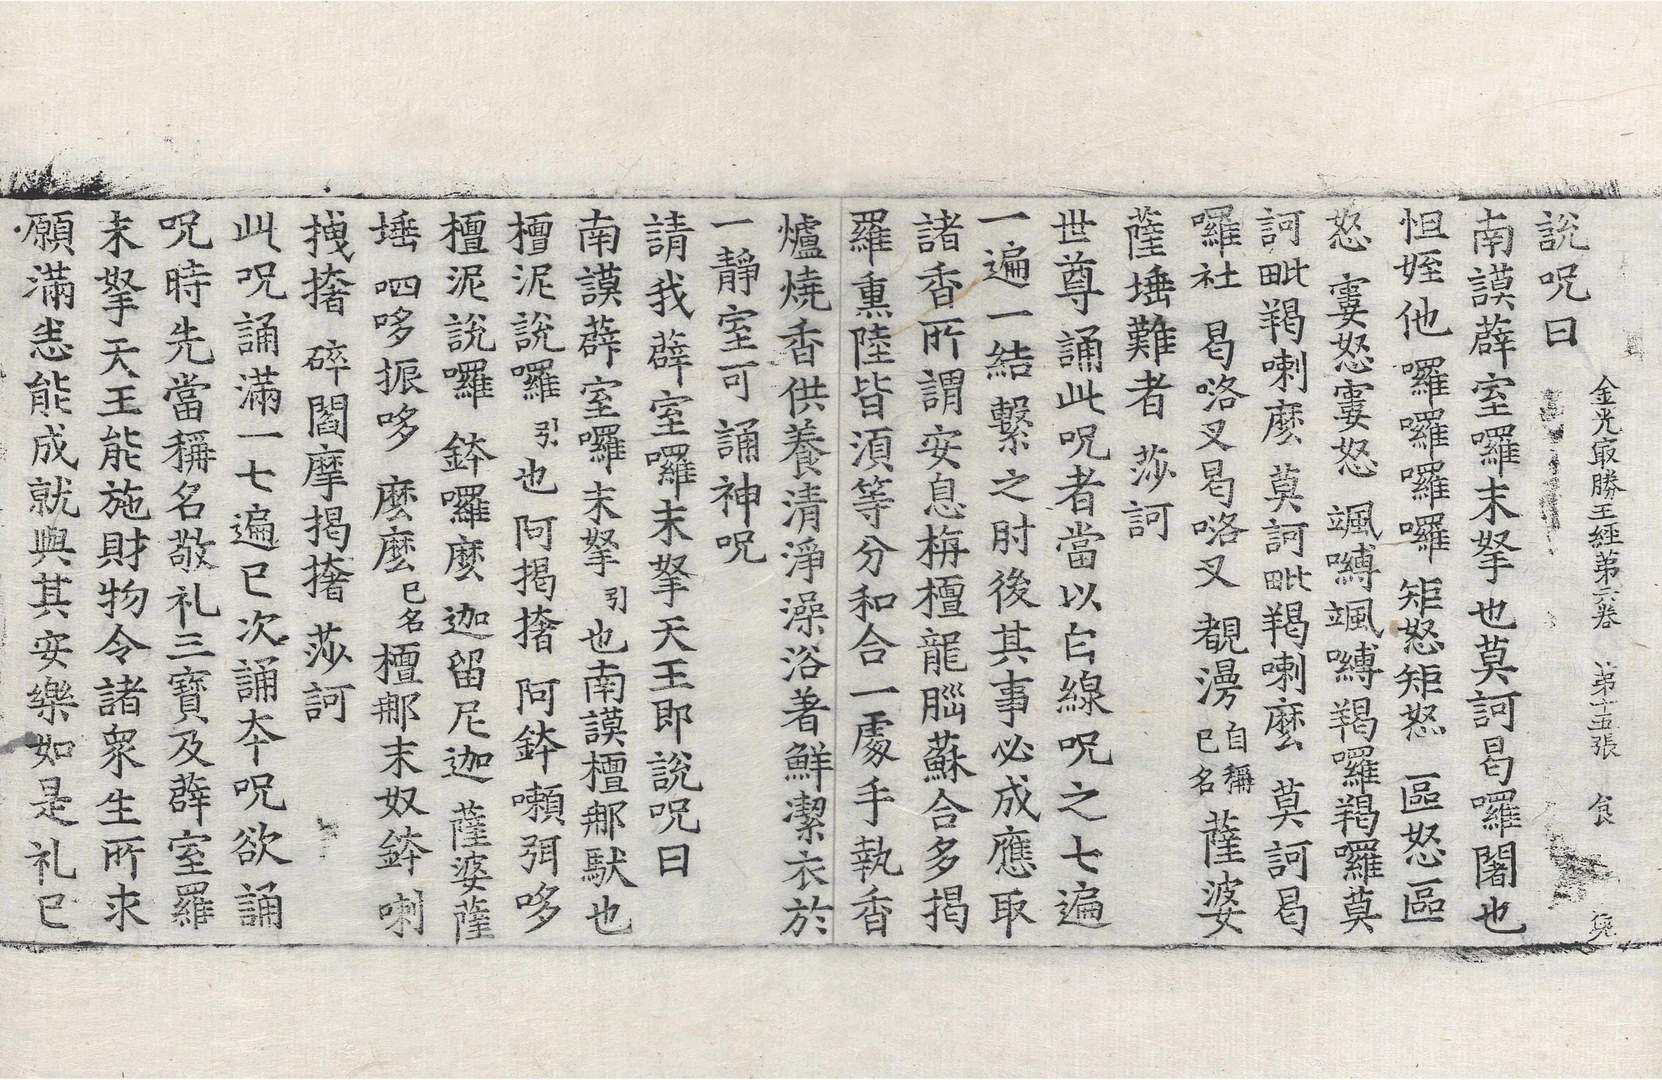 金光㝡勝王經第六卷　第十五張　食
說呪曰
南謨薜室囉末拏也莫訶曷囉闍也
怛姪他　囉囉囉囉　矩怒矩怒　區怒區
怒　寠怒寠怒　颯嚩颯嚩　羯囉羯囉　莫
訶毗羯喇麽　莫訶毗羯喇麽　莫訶曷
囉社　曷咯叉曷咯叉　覩漫自稱已名薩婆
薩埵難者　莎訶
世尊誦此呪者當以白線呪之七遍
一遍一結繫之肘後其事必成應取
諸香所謂安息栴檀龍腦蘇合多揭
羅熏陸皆須等分和合一處手執香
爐燒香供養清淨澡浴著鮮潔衣於
一靜室可誦神呪
請我薜室囉末拏天王即說呪曰
南謨薜室囉末拏引也南謨檀那馱也
檀泥說囉引也　阿揭撦　阿鉢囉弭哆
檀泥說囉　鉢囉麼　迦留尼迦　薩婆薩
埵　呬哆振哆　麼麼已名檀那末奴鉢喇
拽撦　碎閻摩揭撦　莎訶
此呪誦滿一七遍已次誦本呪欲誦
呪時先當稱名敬礼三寶及薜室羅
末拏天王能施財物令諸衆生所求
願滿悉能成就與其安樂如是礼已